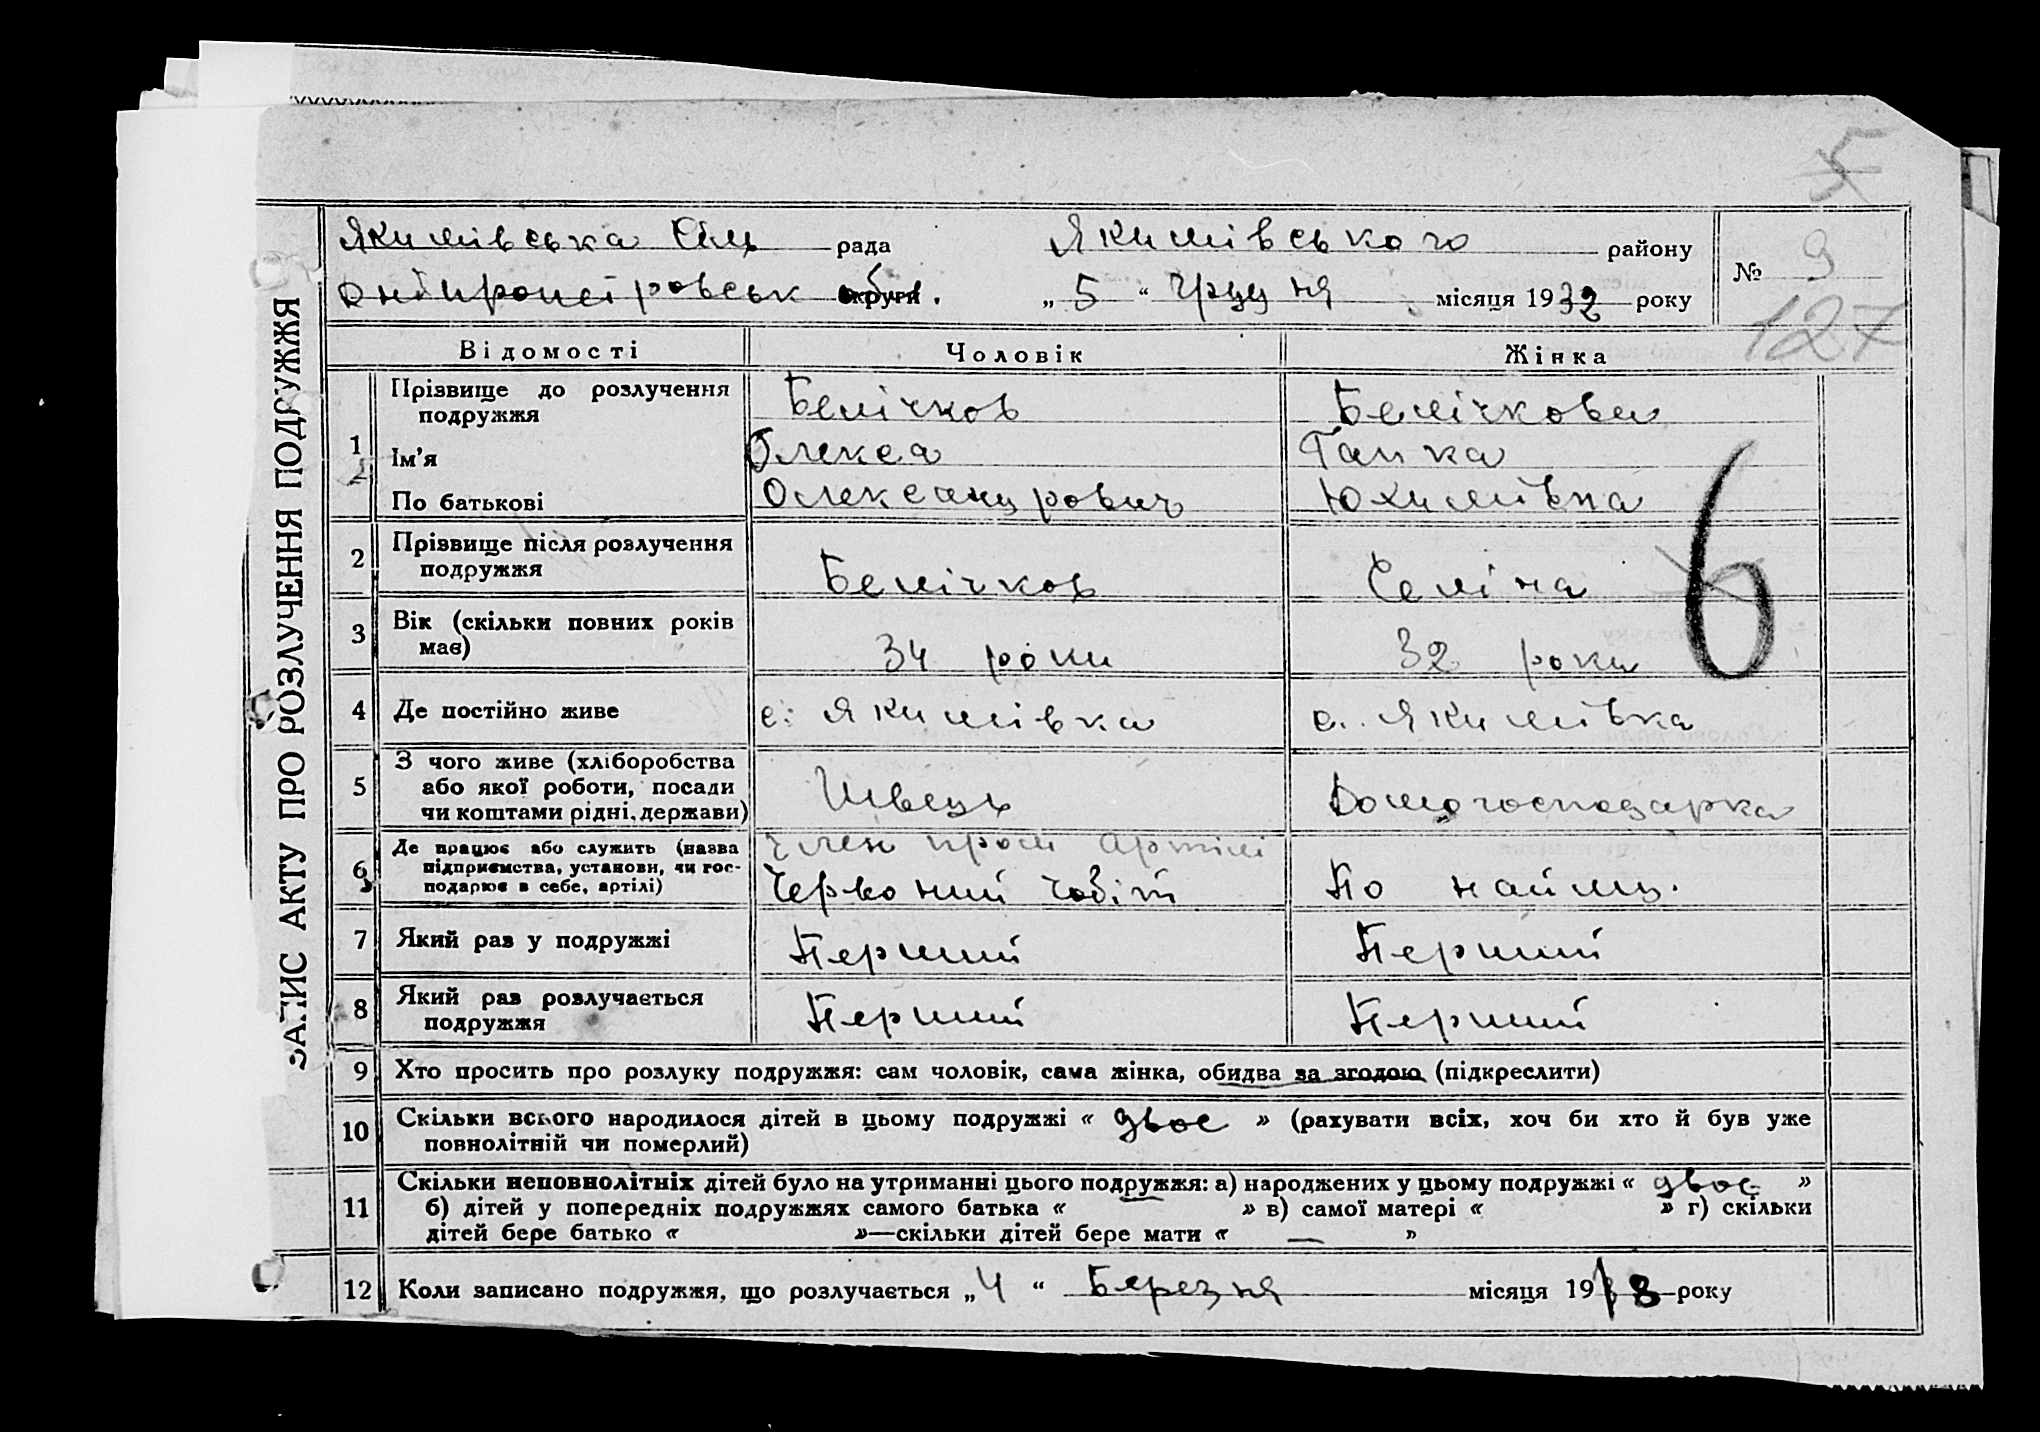 5
ЗАПИС АКТУ ПРО РОЗЛУЧЕННЯ ПОДРУЖЖЯ
Якимівська Сіль рада Якимівського району
Дніпропетровськ округи обл. „ 5 “ Грудня місяця 1932 року
№ 9
127
Відомості Чоловік Жінка
1 Прізвище до розлучення подружжя Белічков Белічкова
Ім'я Олекса Гапка
По батькові Олександрович Юхимівна
6
2 Прізвище після розлучення подружжя Белічков Селіна
3 Вік (скільки повних років має) 34 роки 32 роки
4 Де постійно живе с. Якимівка с. Якимівка
5 З чого живе (хліборобства або якої роботи, посади чи коштами рідні, держави) Швець Домогосподарка
6 Де працює або служить (назва підприємства, установи, чи господарює в себе, артілі) Член пром артілі Червоний Чобіт По найму.
7 Який раз у подружжі Перший Перший
8 Який раз розлучається подружжя Перший Перший
9 Хто просить про розлуку подружжя: сам чоловік, сама жінка, обидва за згодою (підкреслити)
10 Скільки всього народилося дітей в цьому подружжі « двоє » (рахувати всіх, хоч би хто й був уже
повнолітній чи померлий)
11 Скільки неповнолітніх дітей було на утриманні цього подружжя: а) народжених у цьому подружжі « двоє »
б) дітей у попередніх подружжях самого батька « » в) самої матері « » г) скільки
дітей бере батько « »—скільки дітей бере мати « — »
12 Коли записано подружжя, що розлучається „ 4 “ Березня місяця 19 8 року